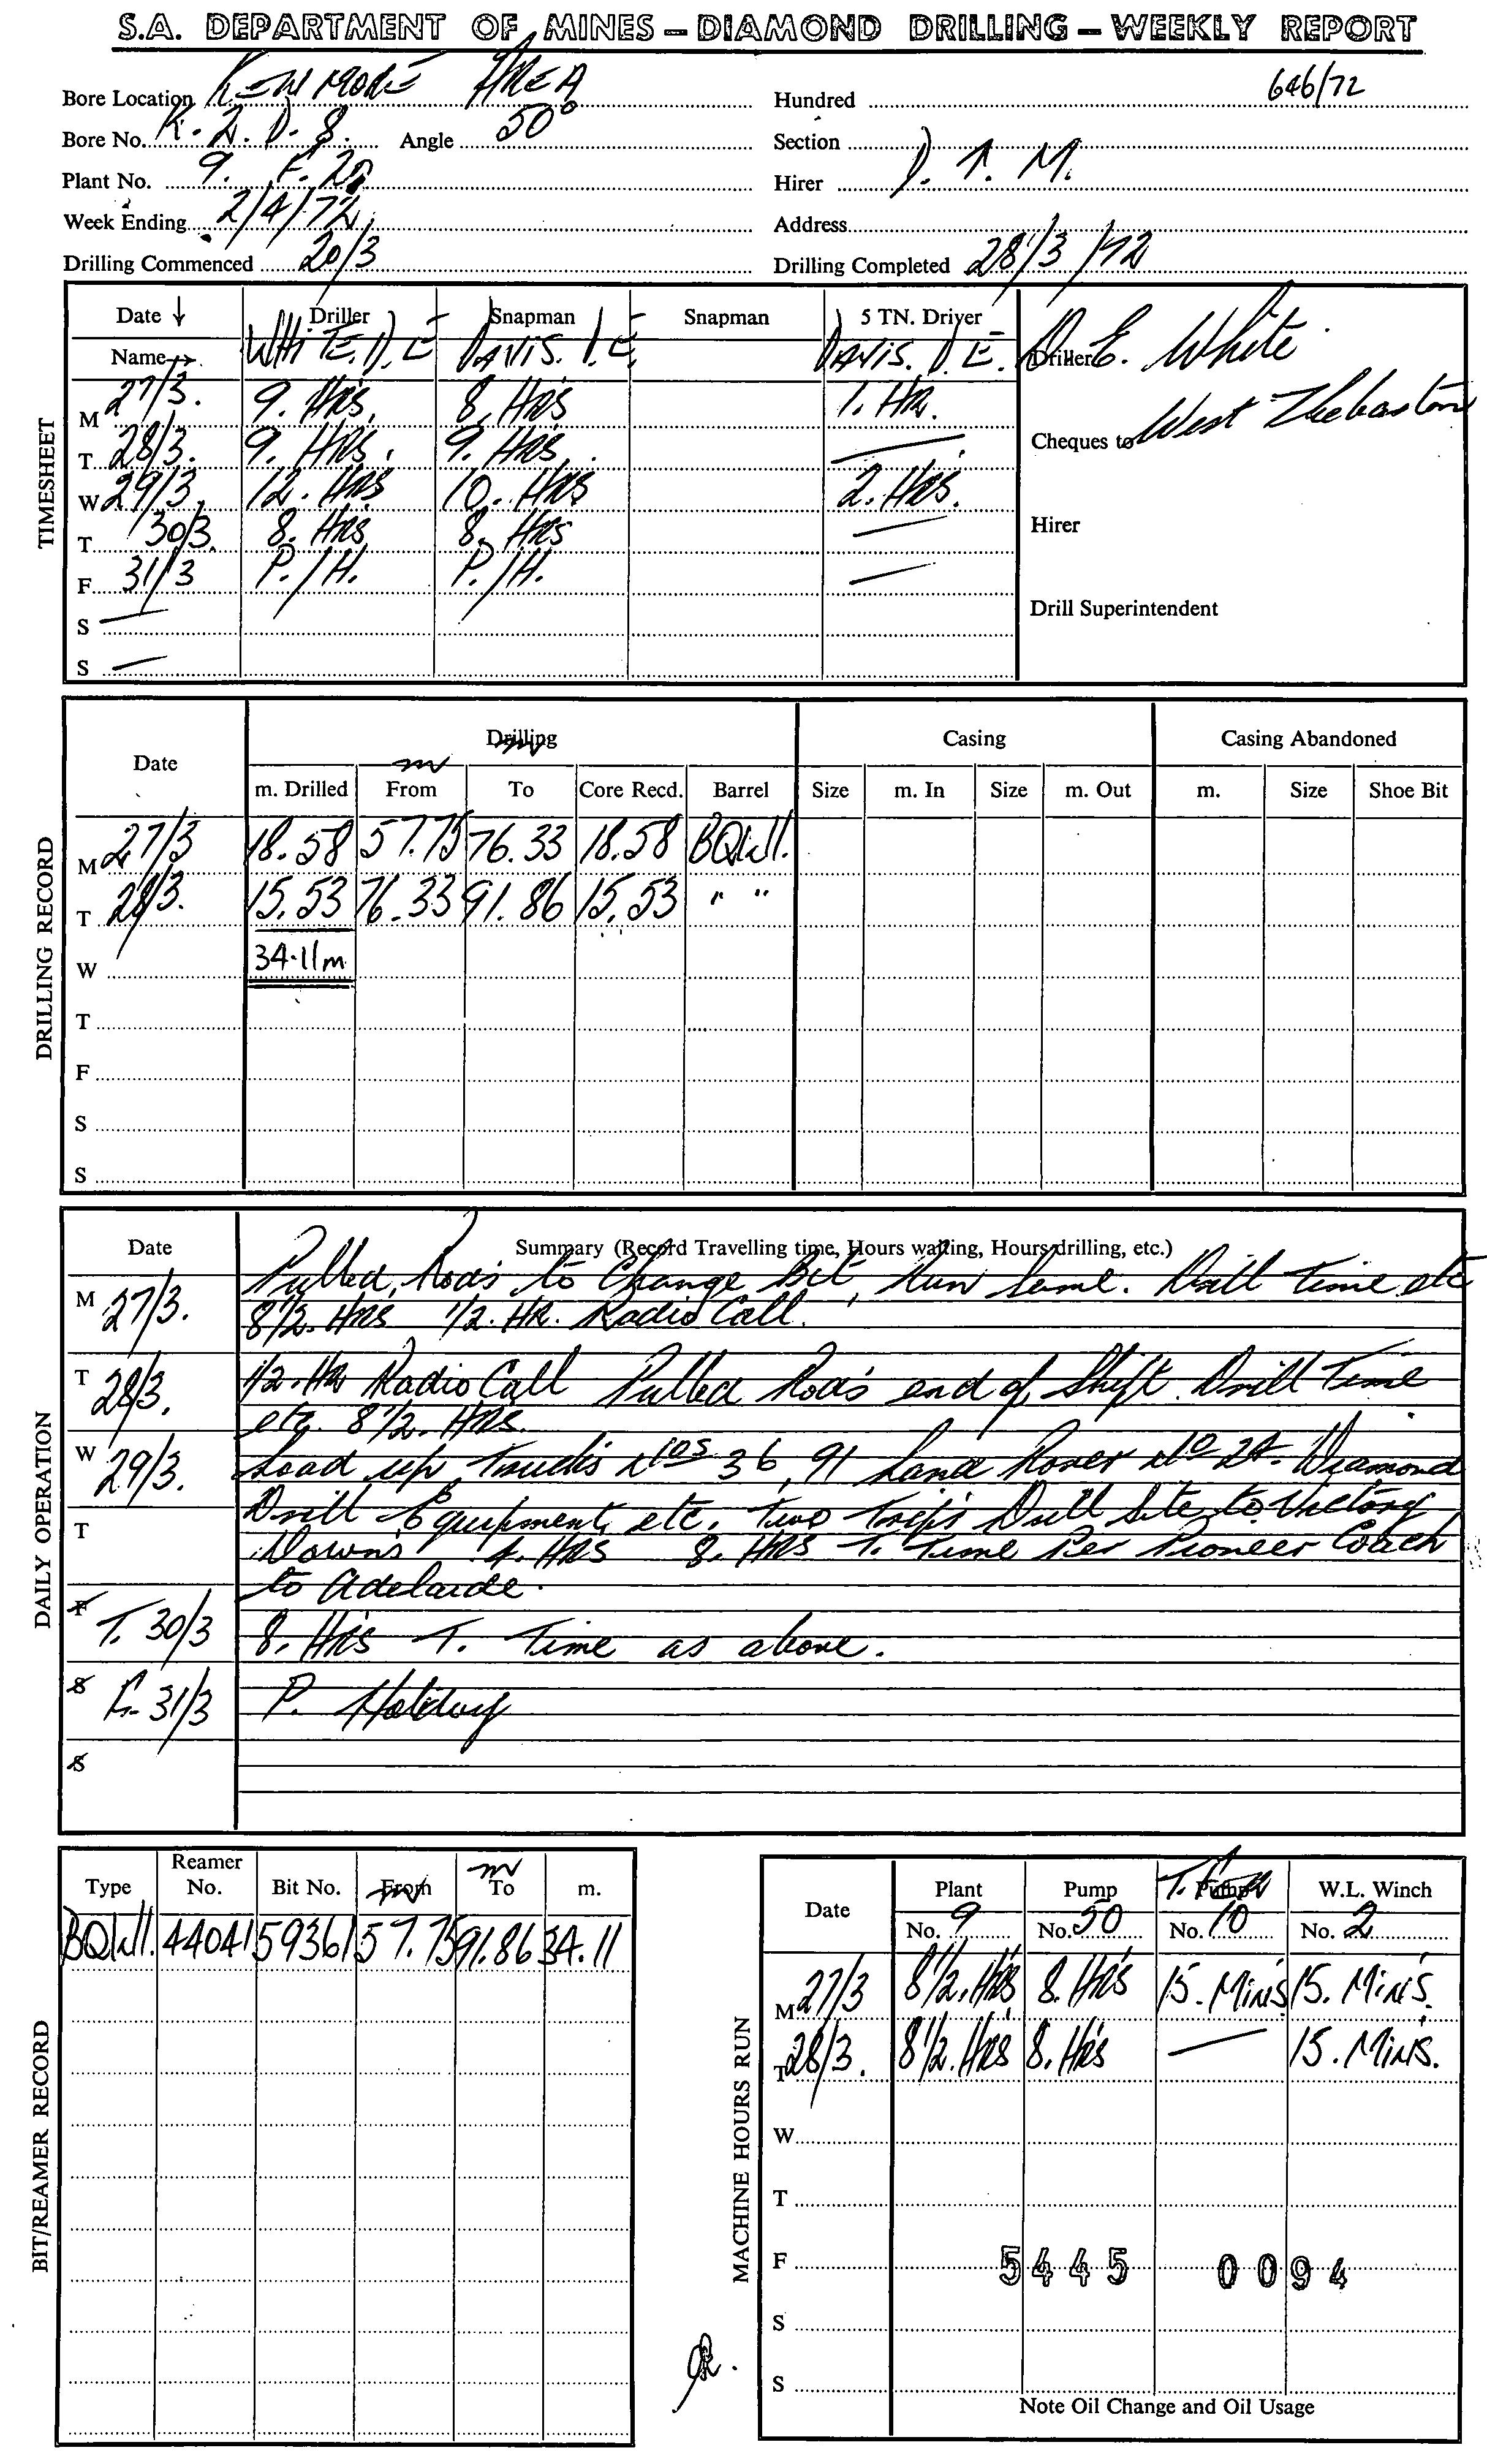 S.A. DEPARTMENT OF MINES – DIAMOND DRILLING – WEEKLY REPORT
646/72
Bore Location KENMORE AREA Hundred
Bore No. K. 2. D. 8. Angle 50° Section
Plant No. 9. F. 20 Hirer D. M.
Week Ending 2/4/72 Address
Drilling Commenced 20/3 Drilling Completed 28/3/72
TIMESHEET
Date Driller Snapman Snapman 5 TN. Driver
Name WHITE. D. E DAVIS. D. E. DAVIS. D. E. Driller D. E. White
M 27/3. 9. HRS. 8. HRS 1. HR.
T 28/3. 9. HRS. 9. HRS. — Cheques to West Thebarton
W 29/3. 12. HRS 10. HRS 2. HRS.
T 30/3. 8. HRS 8. HRS — Hirer
F 31/3 P./H. P./H. —
S — Drill Superintendent
S —
DRILLING RECORD
Date Drilling Casing Casing Abandoned
m m
m. Drilled From To Core Recd. Barrel Size m. In Size m. Out m. Size Shoe Bit
M 27/3 18.58 57.75 76.33 18.58 BQW/l.
T 28/3. 15.53 76.33 91.86 15.53 " "
W 34.11m
T
F
S
S
DAILY OPERATION
Date Summary (Record Travelling time, Hours waiting, Hours drilling, etc.)
M 27/3. Pulled Rods to Change Bit, Run Same. Drill Time etc
8 1/2. HRS 1/2. HR. Radio Call.
T 28/3. 1/2. Hr Radio Call Pulled Rods end of Shift. Drill Time
etc. 8 1/2. HRS.
W 29/3. Load up Trucks Nos 36, 91 Land Rover No 24. Diamond
T Drill Equipment, etc. Two Trips Drill Site to Victory
Downs 4. HRS 8. HRS T. Time Per Pioneer Coach
to Adelaide.
F T. 30/3 8. HRS T. Time as above.
S F. 31/3 P. Holiday
S
BIT/REAMER RECORD
Type Reamer No. Bit No. From To m.
m m
BQW/l. 44041 59361 57.75 91.86 34.11
MACHINE HOURS RUN
Date Plant Pump Pump W.L. Winch
No. 9 No. 50 No. 10 No. 2
M 27/3 8 1/2. HRS 8. HRS 15. MINS 15. MINS.
T 28/3. 8 1/2. HRS 8. HRS — 15. MINS.
W
T
F 5445 0094
S
S
Note Oil Change and Oil Usage